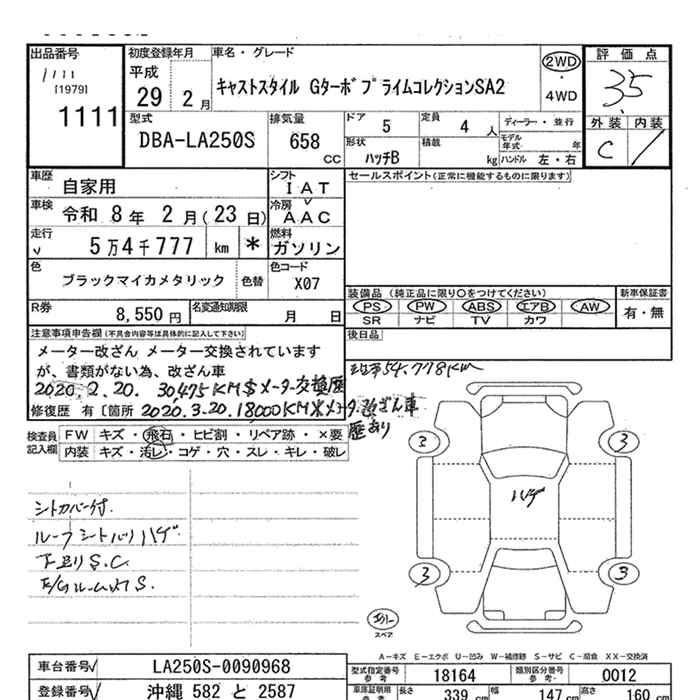 出品番号
1111
[1979]
1111
初度登録年月
平成
29 2月
車名・グレード
キャストスタイル GターボプライムコレクションSA2
2WD
・
4WD
評価点
3.5
外装 内装
C
型式
DBA-LA250S
排気量
658
CC
ドア 5
定員 4 人
ディーラー・並行
モデル年式 年
形状
ハッチB
積載
kg
ハンドル 左・右
車歴
自家用
シフト
IAT
車検
令和 8年 2月(23日)
冷房
AAC
走行
5万4千777 km *
燃料
ガソリン
色
ブラックマイカメタリック
色替
色コード
X07
R券
8,550円
名変通知期限
月 日
セールスポイント(正常に機能するものに限ります)
装備品 (純正品に限り○をつけてください)
新車保証書
PS PW ABS エアB AW
SR ナビ TV カワ
有・無
後日品
注意事項申告欄(不具合内容等は具体的に記入して下さい)
メーター改ざん メーター交換されています
が、書類がない為、改ざん車
2020.2.20. 30,475KM $メーター交換歴
修復歴 有〔箇所 2020.3.20.18000KM*メーター改ざん車
歴あり
54.778KM
検査員
記入欄
FW キズ・飛石・ヒビ割・リペア跡・×要
内装 キズ・汚レ・コゲ・穴・スレ・キレ・破レ
シートカバー付.
ルーフシートバリハゲ
下廻りS.C
E/GルームサビS.
3
3
ハゲ
3
3
スペア
A-キズ E-エクボ U-凹み W-補修跡 S-サビ C-腐食 XX-交換済
車台番号
LA250S-0090968
登録番号
沖縄 582 と 2587
型式指定番号
-参考-
18164
類別区分番号
-参考-
0012
車庫証明用
-参考-
長さ 339cm
幅 147cm
高さ 160cm